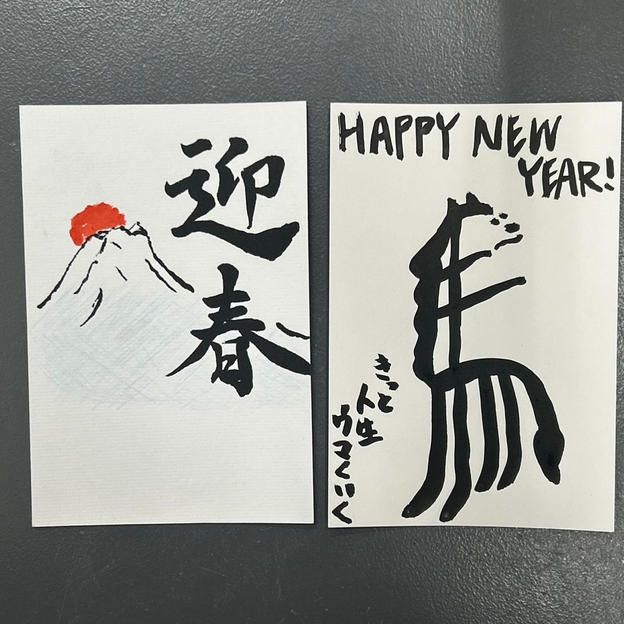 迎
春
HAPPY NEW
YEAR!
きっと
人生
ウマくいく